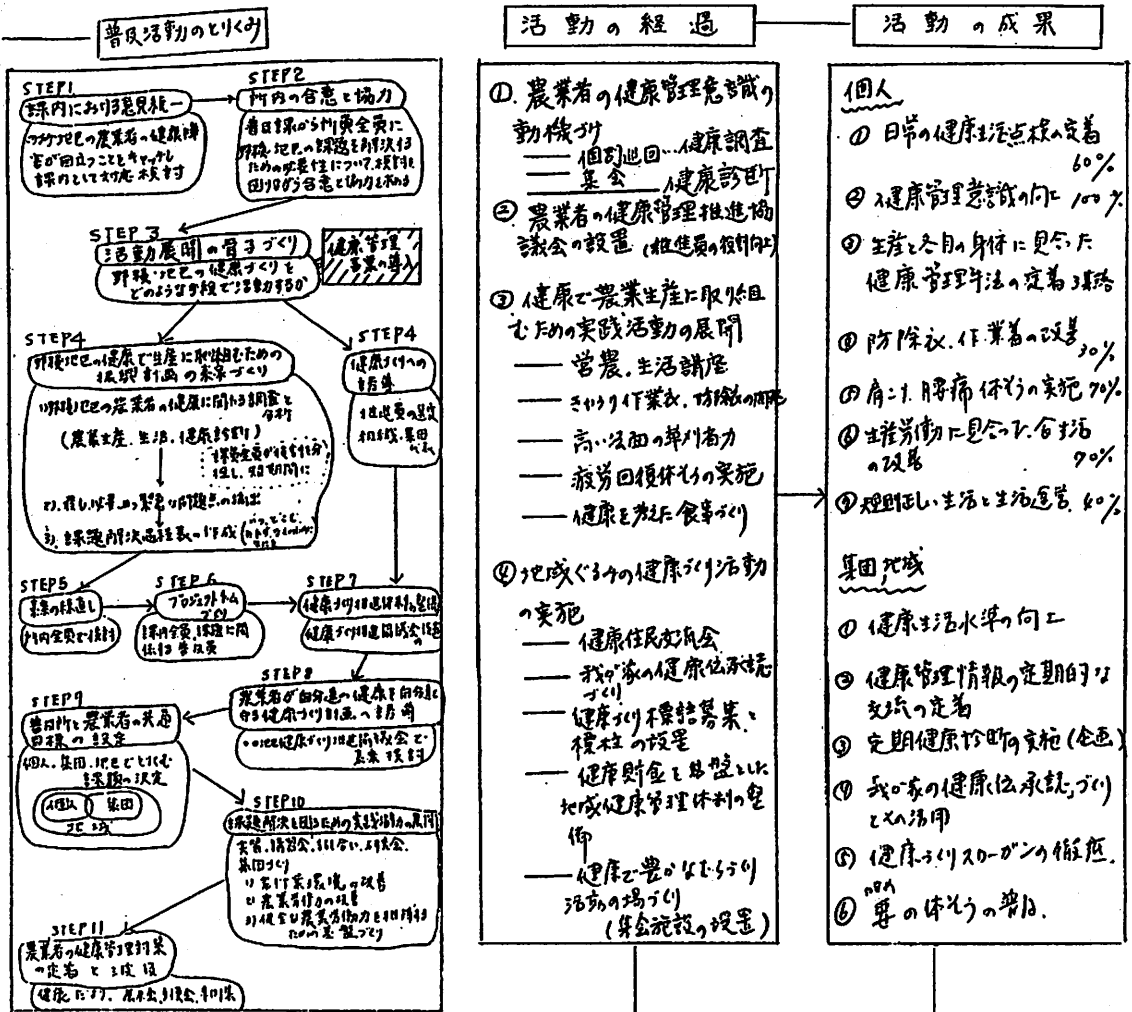 普及活動のとりくみ
STEP1
課内における意見統一
野積地区の農業者の健康障
害が目立つことをキャッチし
課内として対応検討
STEP2
所内の合意と協力
普及課から所員全員に
野積地区の課題を解決する
ための必要性について検討を
図りながら合意と協力を求める
STEP3
活動展開の骨子づくり
野積地区の健康づくりを
どのような手段で活動するか
健康管理
の導入
STEP4
野積地区の健康で生産に取り組むための
振興計画の素案づくり
野積地区の農業者の健康に関する調査と
分析
(農業生産、生活、健康診断)
短期間に
課題解決過程表の作成
STEP4
健康づくりへの
誘導
推進員の選定
組織、集団
STEP5
素案の検討
所内全員で検討
STEP6
プロジェクトチーム
づくり
課内全員、課題に関
係する普及員
STEP7
健康づくり推進体制の整備
健康づくり推進協議会設置
STEP8
農業者が自分達の健康を自分達で
守る健康づくり計画への誘導
健康づくり推進協議会で
素案検討
STEP9
普及所と農業者の共通
目標の設定
個人、集団、地区でとりくむ
課題の決定
個人
集団
地域
STEP10
課題解決を図るための実践活動の展開
実習、講習会、話し合い、
集団づくり
1) 作業環境の改善
2) 農業労働の改善
3) 健全な農業労働力を維持する
ための基盤づくり
STEP11
農業者の健康管理対策
の定着と波及
健康だより、
活動の経過
①. 農業者の健康管理意識の
動機づけ
── 個別巡回…健康調査
── 集会 健康診断
② 農業者の健康管理推進協
議会の設置 (推進員の役割向上)
③ 健康で農業生産に取り組
むための実践活動の展開
── 営農、生活講座
── きゅうり作業衣、防除衣の開発
── 高い法面の草刈省力
── 疲労回復体そうの実施
── 健康を考えた食事づくり
④ 地域ぐるみの健康づくり活動
の実施
── 健康住民交流会
── 我が家の健康伝承誌
づくり
── 健康づくり標語募集と
標柱の設置
── 健康貯金を基盤とした
地域健康管理体制の整
備
── 健康で豊かなむらづくり
活動の場づくり
(集会施設の設置)
活動の成果
個人
① 日常の健康生活点検の定着
60%
② 健康管理意識の向上 100%
③ 生産と各自の身体に見合った
健康管理手法の定着
④ 防除衣、作業着の改善
30%
⑤ 肩こり、腰痛体そうの実施 70%
⑥ 生産労働に見合った食生活
の改善 70%
⑦ 規則正しい生活と生活運営 40%
集団、地域
① 健康生活水準の向上
② 健康管理情報の定期的な
交流の定着
③ 定期健康診断の実施(企画)
④ 我が家の健康伝承誌づくり
とその活用
⑤ 健康づくりスローガンの徹底.
⑥ の体そうの普及.